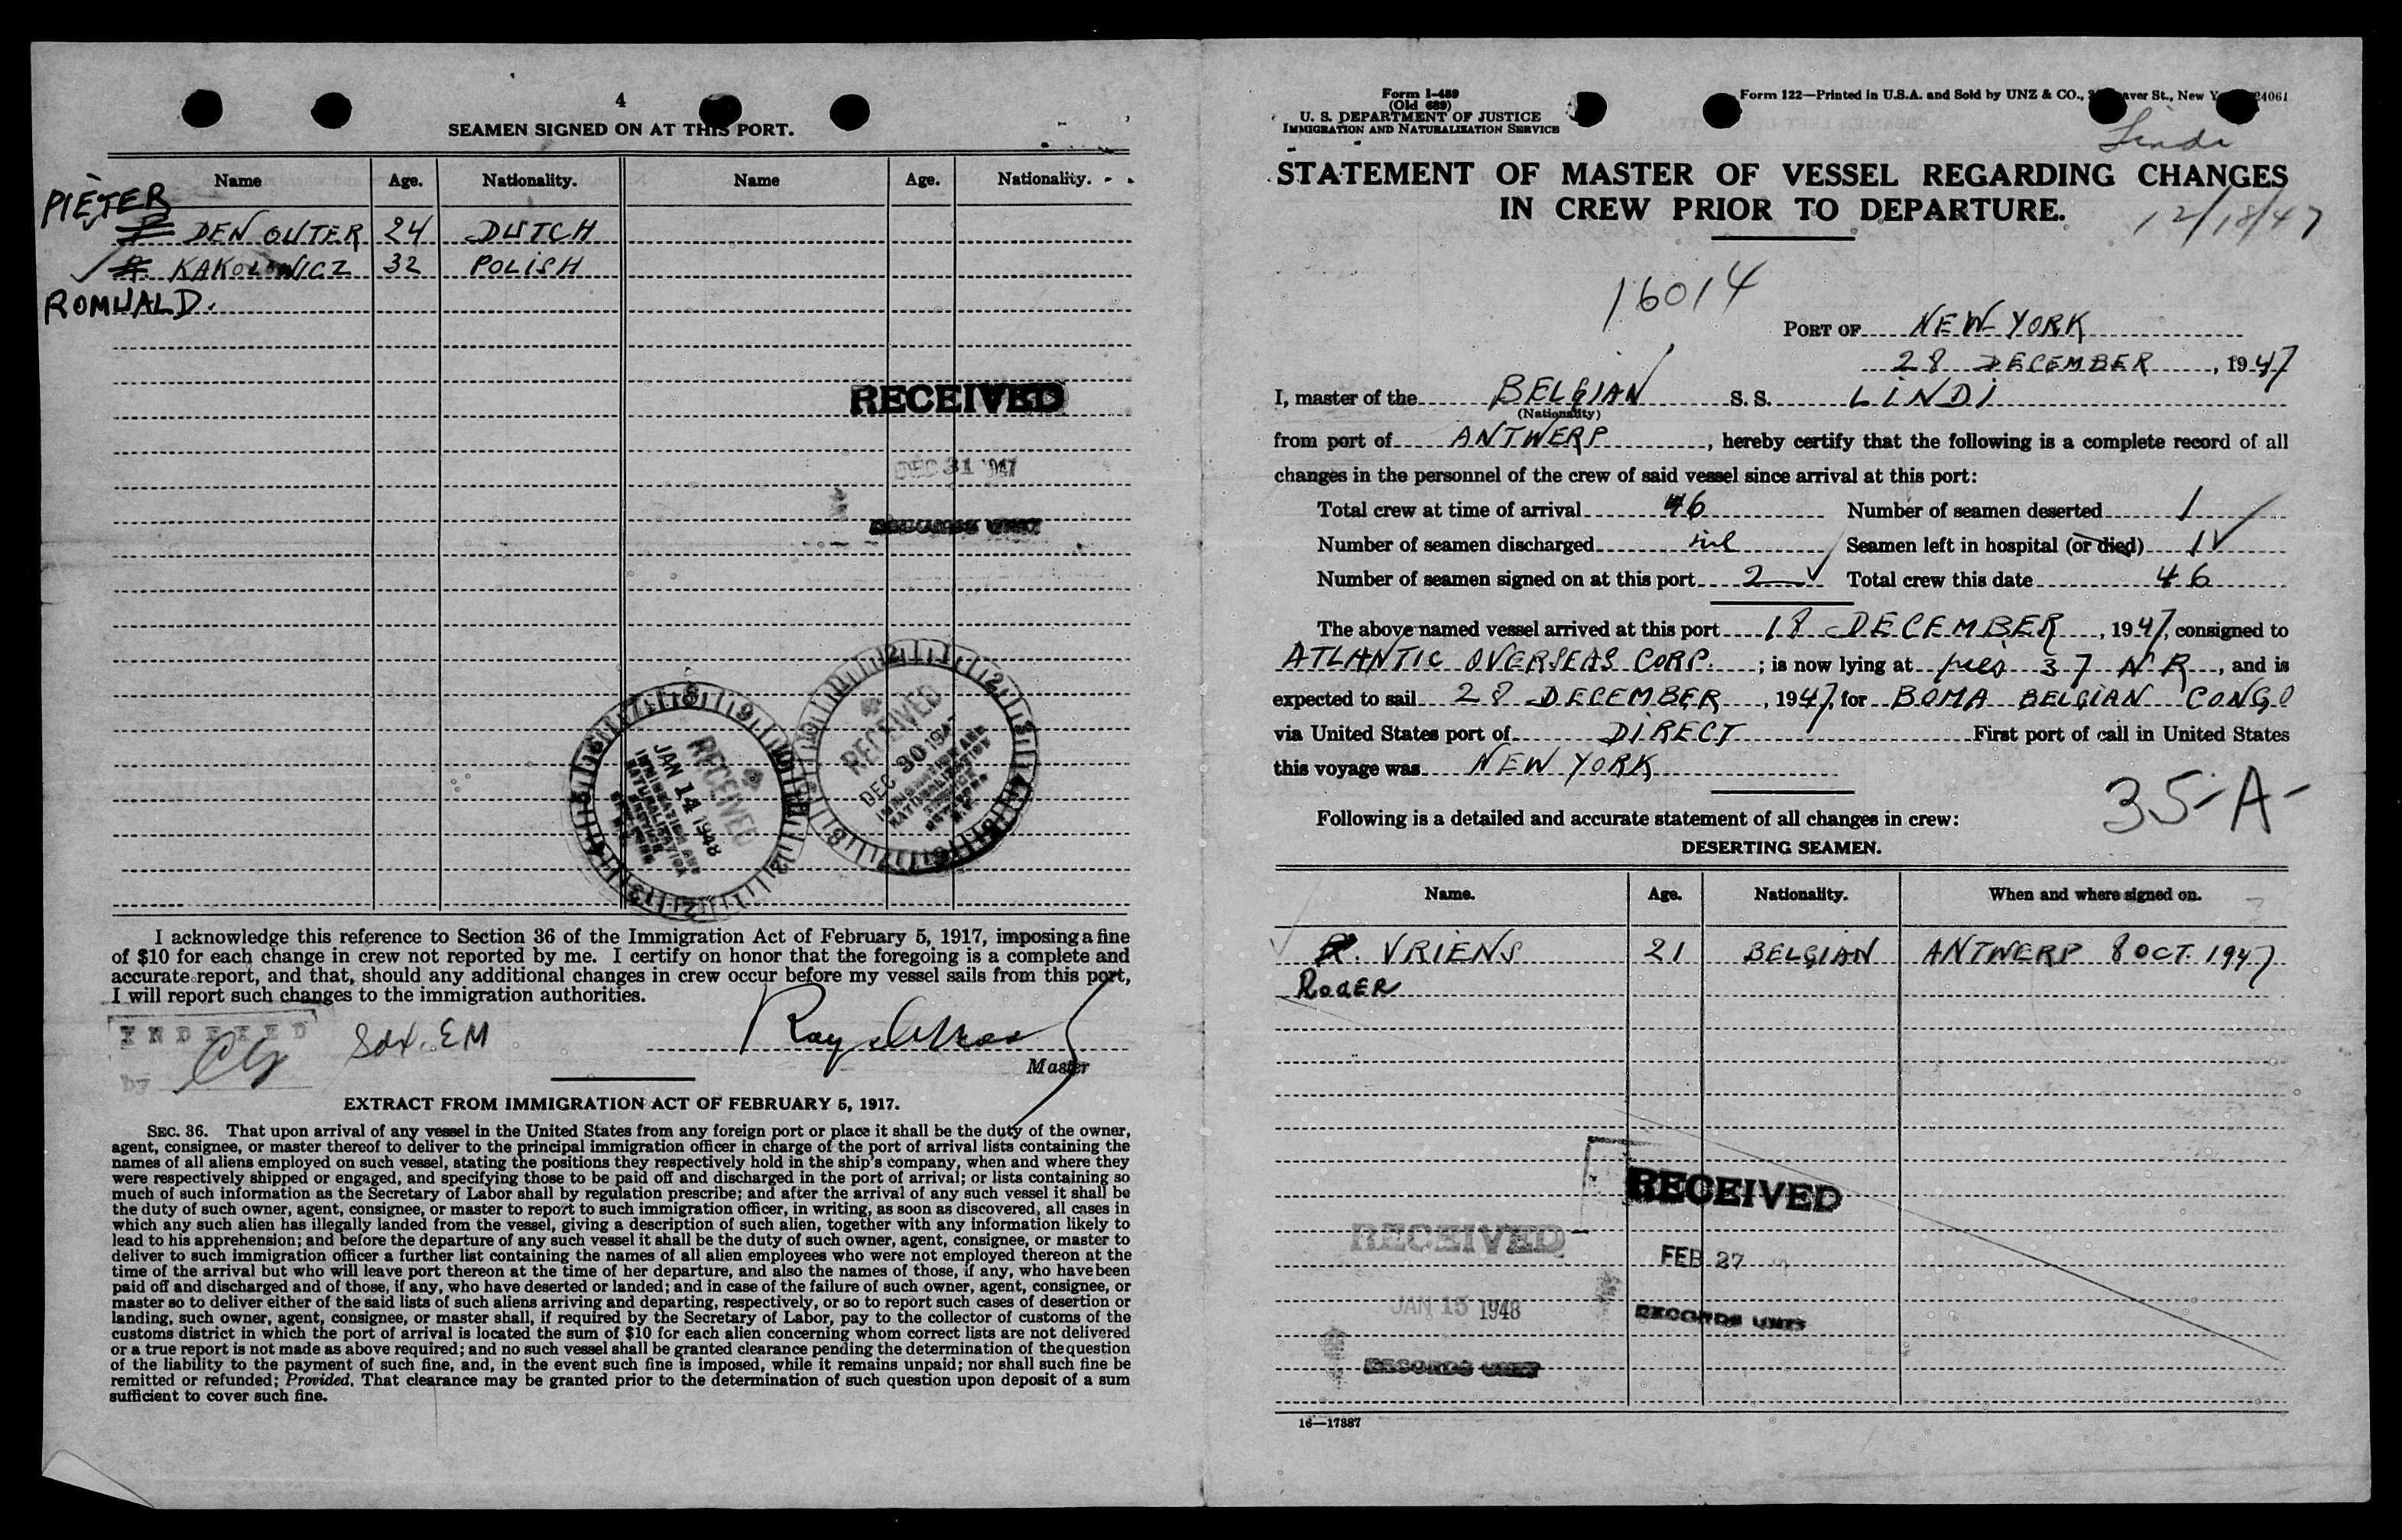 4
SEAMEN SIGNED ON AT THIS PORT.
Name Age. Nationality. Name Age. Nationality.
PIETER
P. DEN OUTER 24 DUTCH
R. KAKOLOWICZ 32 POLISH
ROMUALD.
RECEIVED
DEC 31 1947
RECORDS UNIT
RECEIVED
JAN 14 1948
IMMIGRATION AND
NATURALIZATION
SERVICE
RECEIVED
DEC 30 194
IMMIGRATION AND
NATURALIZATION
SERVICE
I acknowledge this reference to Section 36 of the Immigration Act of February 5, 1917, imposing a fine
of $10 for each change in crew not reported by me. I certify on honor that the foregoing is a complete and
accurate report, and that, should any additional changes in crew occur before my vessel sails from this port,
I will report such changes to the immigration authorities.
INDEXED
by
EM
Master
EXTRACT FROM IMMIGRATION ACT OF FEBRUARY 5, 1917.
SEC. 36. That upon arrival of any vessel in the United States from any foreign port or place it shall be the duty of the owner,
agent, consignee, or master thereof to deliver to the principal immigration officer in charge of the port of arrival lists containing the
names of all aliens employed on such vessel, stating the positions they respectively hold in the ship's company, when and where they
were respectively shipped or engaged, and specifying those to be paid off and discharged in the port of arrival; or lists containing so
much of such information as the Secretary of Labor shall by regulation prescribe; and after the arrival of any such vessel it shall be
the duty of such owner, agent, consignee, or master to report to such immigration officer, in writing, as soon as discovered, all cases in
which any such alien has illegally landed from the vessel, giving a description of such alien, together with any information likely to
lead to his apprehension; and before the departure of any such vessel it shall be the duty of such owner, agent, consignee, or master to
deliver to such immigration officer a further list containing the names of all alien employees who were not employed thereon at the
time of the arrival but who will leave port thereon at the time of her departure, and also the names of those, if any, who have been
paid off and discharged and of those, if any, who have deserted or landed; and in case of the failure of such owner, agent, consignee, or
master so to deliver either of the said lists of such aliens arriving and departing, respectively, or so to report such cases of desertion or
landing, such owner, agent, consignee, or master shall, if required by the Secretary of Labor, pay to the collector of customs of the
customs district in which the port of arrival is located the sum of $10 for each alien concerning whom correct lists are not delivered
or a true report is not made as above required; and no such vessel shall be granted clearance pending the determination of the question
of the liability to the payment of such fine, and, in the event such fine is imposed, while it remains unpaid; nor shall such fine be
remitted or refunded; Provided, That clearance may be granted prior to the determination of such question upon deposit of a sum
sufficient to cover such fine.
Form I-489
(Old 689)
U. S. DEPARTMENT OF JUSTICE
IMMIGRATION AND NATURALIZATION SERVICE
Form 122—Printed in U.S.A. and Sold by UNZ & CO., aver St., New Y 24061
Lindi
STATEMENT OF MASTER OF VESSEL REGARDING CHANGES
IN CREW PRIOR TO DEPARTURE.
12/18/47
16014
PORT OF NEW YORK
28 DECEMBER, 1947
I, master of the BELGIAN S. S. LINDI
(Nationality)
from port of ANTWERP, hereby certify that the following is a complete record of all
changes in the personnel of the crew of said vessel since arrival at this port:
Total crew at time of arrival 46 Number of seamen deserted 1
Number of seamen discharged nil Seamen left in hospital (or died) 1
Number of seamen signed on at this port 2 Total crew this date 46
The above named vessel arrived at this port 18 DECEMBER, 1947, consigned to
ATLANTIC OVERSEAS CORP.; is now lying at pier 37 NR, and is
expected to sail 28 DECEMBER, 1947, for BOMA BELGIAN CONGO
via United States port of DIRECT First port of call in United States
this voyage was NEW YORK
35-A-
Following is a detailed and accurate statement of all changes in crew:
DESERTING SEAMEN.
Name. Age. Nationality. When and where signed on.
R. VRIENS 21 BELGIAN ANTWERP 8 OCT. 1947
ROGER
RECEIVED
FEB 27
RECORDS UNIT
RECEIVED
JAN 15 1948
RECORDS UNIT
16—17887